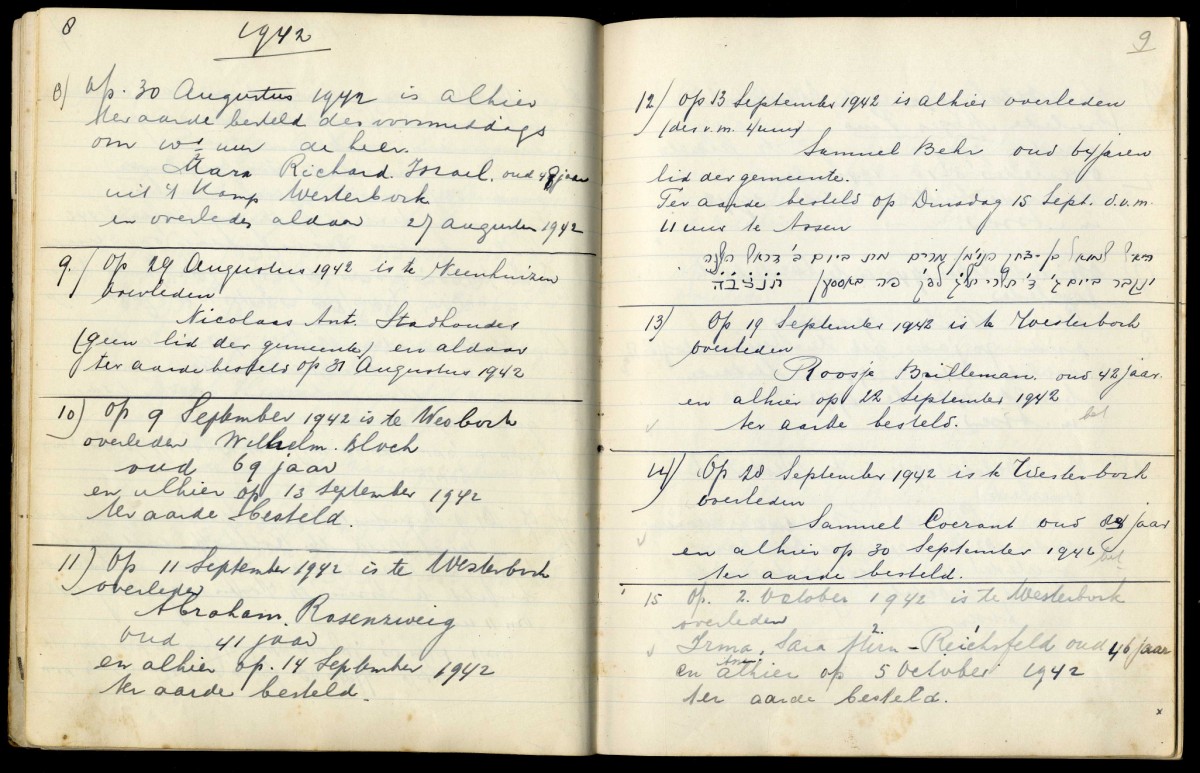 8
1942
8) Op. 30 Augustus 1942 is alhier
ter aarde besteld des voormiddags
om uur de heer.
Richard. Israel. oud 48 jaar
uit 't Kamp Westerbork
en overleden aldaar 27 augustus 1942
9. / Op 29 Augustus 1942 is te Veenhuizen
overleden
Nicolaas Ant. Stadhouder
(geen lid der gemeente) en aldaar
ter aarde besteld op 31 Augustus 1942
10) Op 9 September 1942 is te Wesbork
overleden Wilhelm. Bloch
oud 69 jaar
en alhier op 13 September 1942
ter aarde besteld.
11) Op 11 September 1942 is te Westerbork
overleden
Abraham. Rosenzweig
oud 41 jaar
en alhier op. 14 September 1942
ter aarde besteld.
9
12) Op 13 September 1942 is alhier overleden
(des v.m. 4 uur)
Samuel Behr oud 64 jaren
lid der gemeente.
Ter aarde besteld op Dinsdag 15 Sept. d.v.m.
11 uur te Assen
שמואל בן יצחק מרים מת ביום ב' דראש השנה
ונקבר ביום ג' ד' תשרי תש"ג לפ"ק פה אססען תנצבה
13) Op 19 September 1942 is te Westerbork
overleden
Roosje Brilleman. oud 42 jaar.
en alhier op 22 September 1942
ter aarde besteld.
14) Op 28 September 1942 is te Westerbork
overleden
Samuel Coerant oud jaar
en alhier op 30 September 1942
ter aarde besteld.
15 Op. 2. October 1942 is te Westerbork
overleden
Irma, Sara - Reichsfeld oud 46 jaar
en alhier op 5 October 1942
ter aarde besteld.